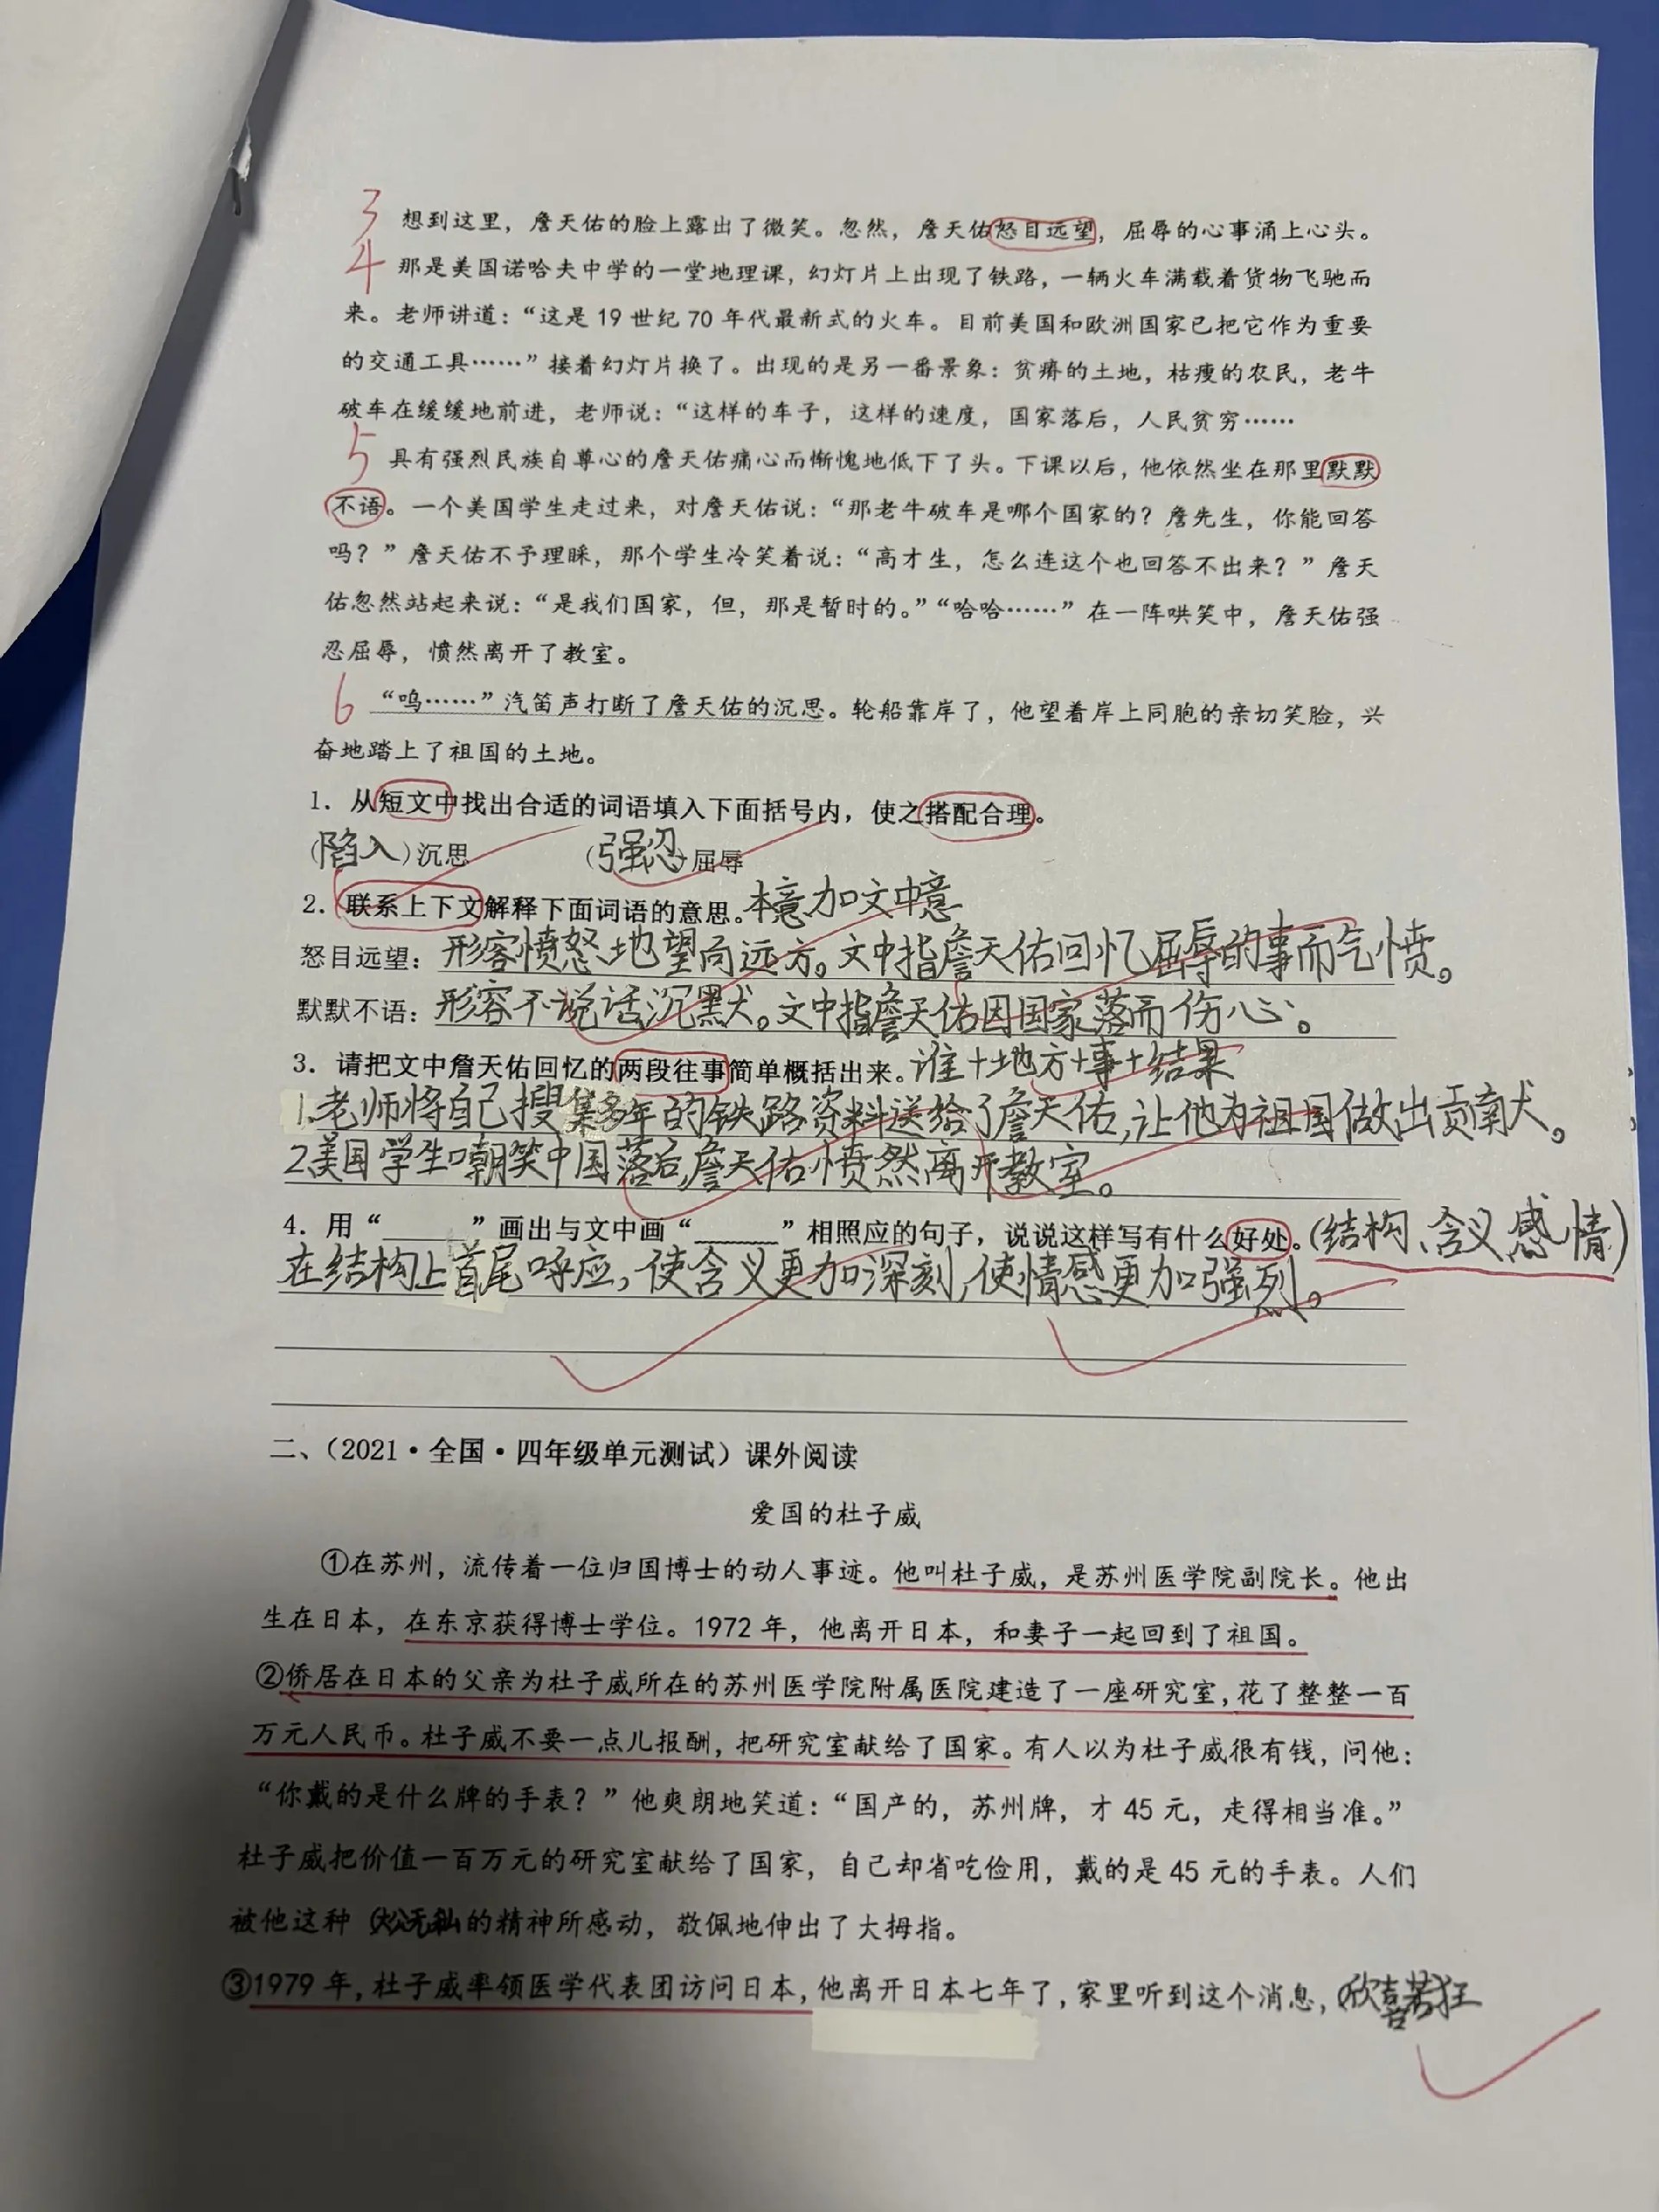 3 想到这里，詹天佑的脸上露出了微笑。忽然，詹天佑怒目远望，屈辱的心事涌上心头。
4 那是美国诺哈夫中学的一堂地理课，幻灯片上出现了铁路，一辆火车满载着货物飞驰而
来。老师讲道：“这是 19 世纪 70 年代最新式的火车。目前美国和欧洲国家已把它作为重要
的交通工具……”接着幻灯片换了。出现的是另一番景象：贫瘠的土地，枯瘦的农民，老牛
破车在缓缓地前进，老师说：“这样的车子，这样的速度，国家落后，人民贫穷……
5 具有强烈民族自尊心的詹天佑痛心而惭愧地低下了头。下课以后，他依然坐在那里默默
不语。一个美国学生走过来，对詹天佑说：“那老牛破车是哪个国家的？詹先生，你能回答
吗？”詹天佑不予理睬，那个学生冷笑着说：“高才生，怎么连这个也回答不出来？”詹天
佑忽然站起来说：“是我们国家，但，那是暂时的。”“哈哈……”在一阵哄笑中，詹天佑强
忍屈辱，愤然离开了教室。
6 “呜……”汽笛声打断了詹天佑的沉思。轮船靠岸了，他望着岸上同胞的亲切笑脸，兴
奋地踏上了祖国的土地。
1．从短文中找出合适的词语填入下面括号内，使之搭配合理。
(陷入)沉思 (强忍)屈辱
2．联系上下文解释下面词语的意思。本意加文中意
怒目远望：形容愤怒地望向远方。文中指詹天佑回忆屈辱的事而气愤。
默默不语：形容不说话沉默。文中指詹天佑因国家落而伤心。
3．请把文中詹天佑回忆的两段往事简单概括出来。谁+地方+事+结果
1.老师将自己搜集多年的铁路资料送给了詹天佑,让他为祖国做出贡献。
2.美国学生嘲笑中国落后,詹天佑愤然离开教室。
4．用“______”画出与文中画“______”相照应的句子，说说这样写有什么好处。(结构、含义、感情)
在结构上首尾呼应,使含义更加深刻,使情感更加强烈。
二、（2021·全国·四年级单元测试）课外阅读
爱国的杜子威
①在苏州，流传着一位归国博士的动人事迹。他叫杜子威，是苏州医学院副院长。他出
生在日本，在东京获得博士学位。1972 年，他离开日本，和妻子一起回到了祖国。
②侨居在日本的父亲为杜子威所在的苏州医学院附属医院建造了一座研究室，花了整整一百
万元人民币。杜子威不要一点儿报酬，把研究室献给了国家。有人以为杜子威很有钱，问他：
“你戴的是什么牌的手表？”他爽朗地笑道：“国产的，苏州牌，才 45 元，走得相当准。”
杜子威把价值一百万元的研究室献给了国家，自己却省吃俭用，戴的是 45 元的手表。人们
被他这种（大公无私的精神所感动，敬佩地伸出了大拇指。
③1979 年，杜子威率领医学代表团访问日本，他离开日本七年了，家里听到这个消息，（欣喜若狂